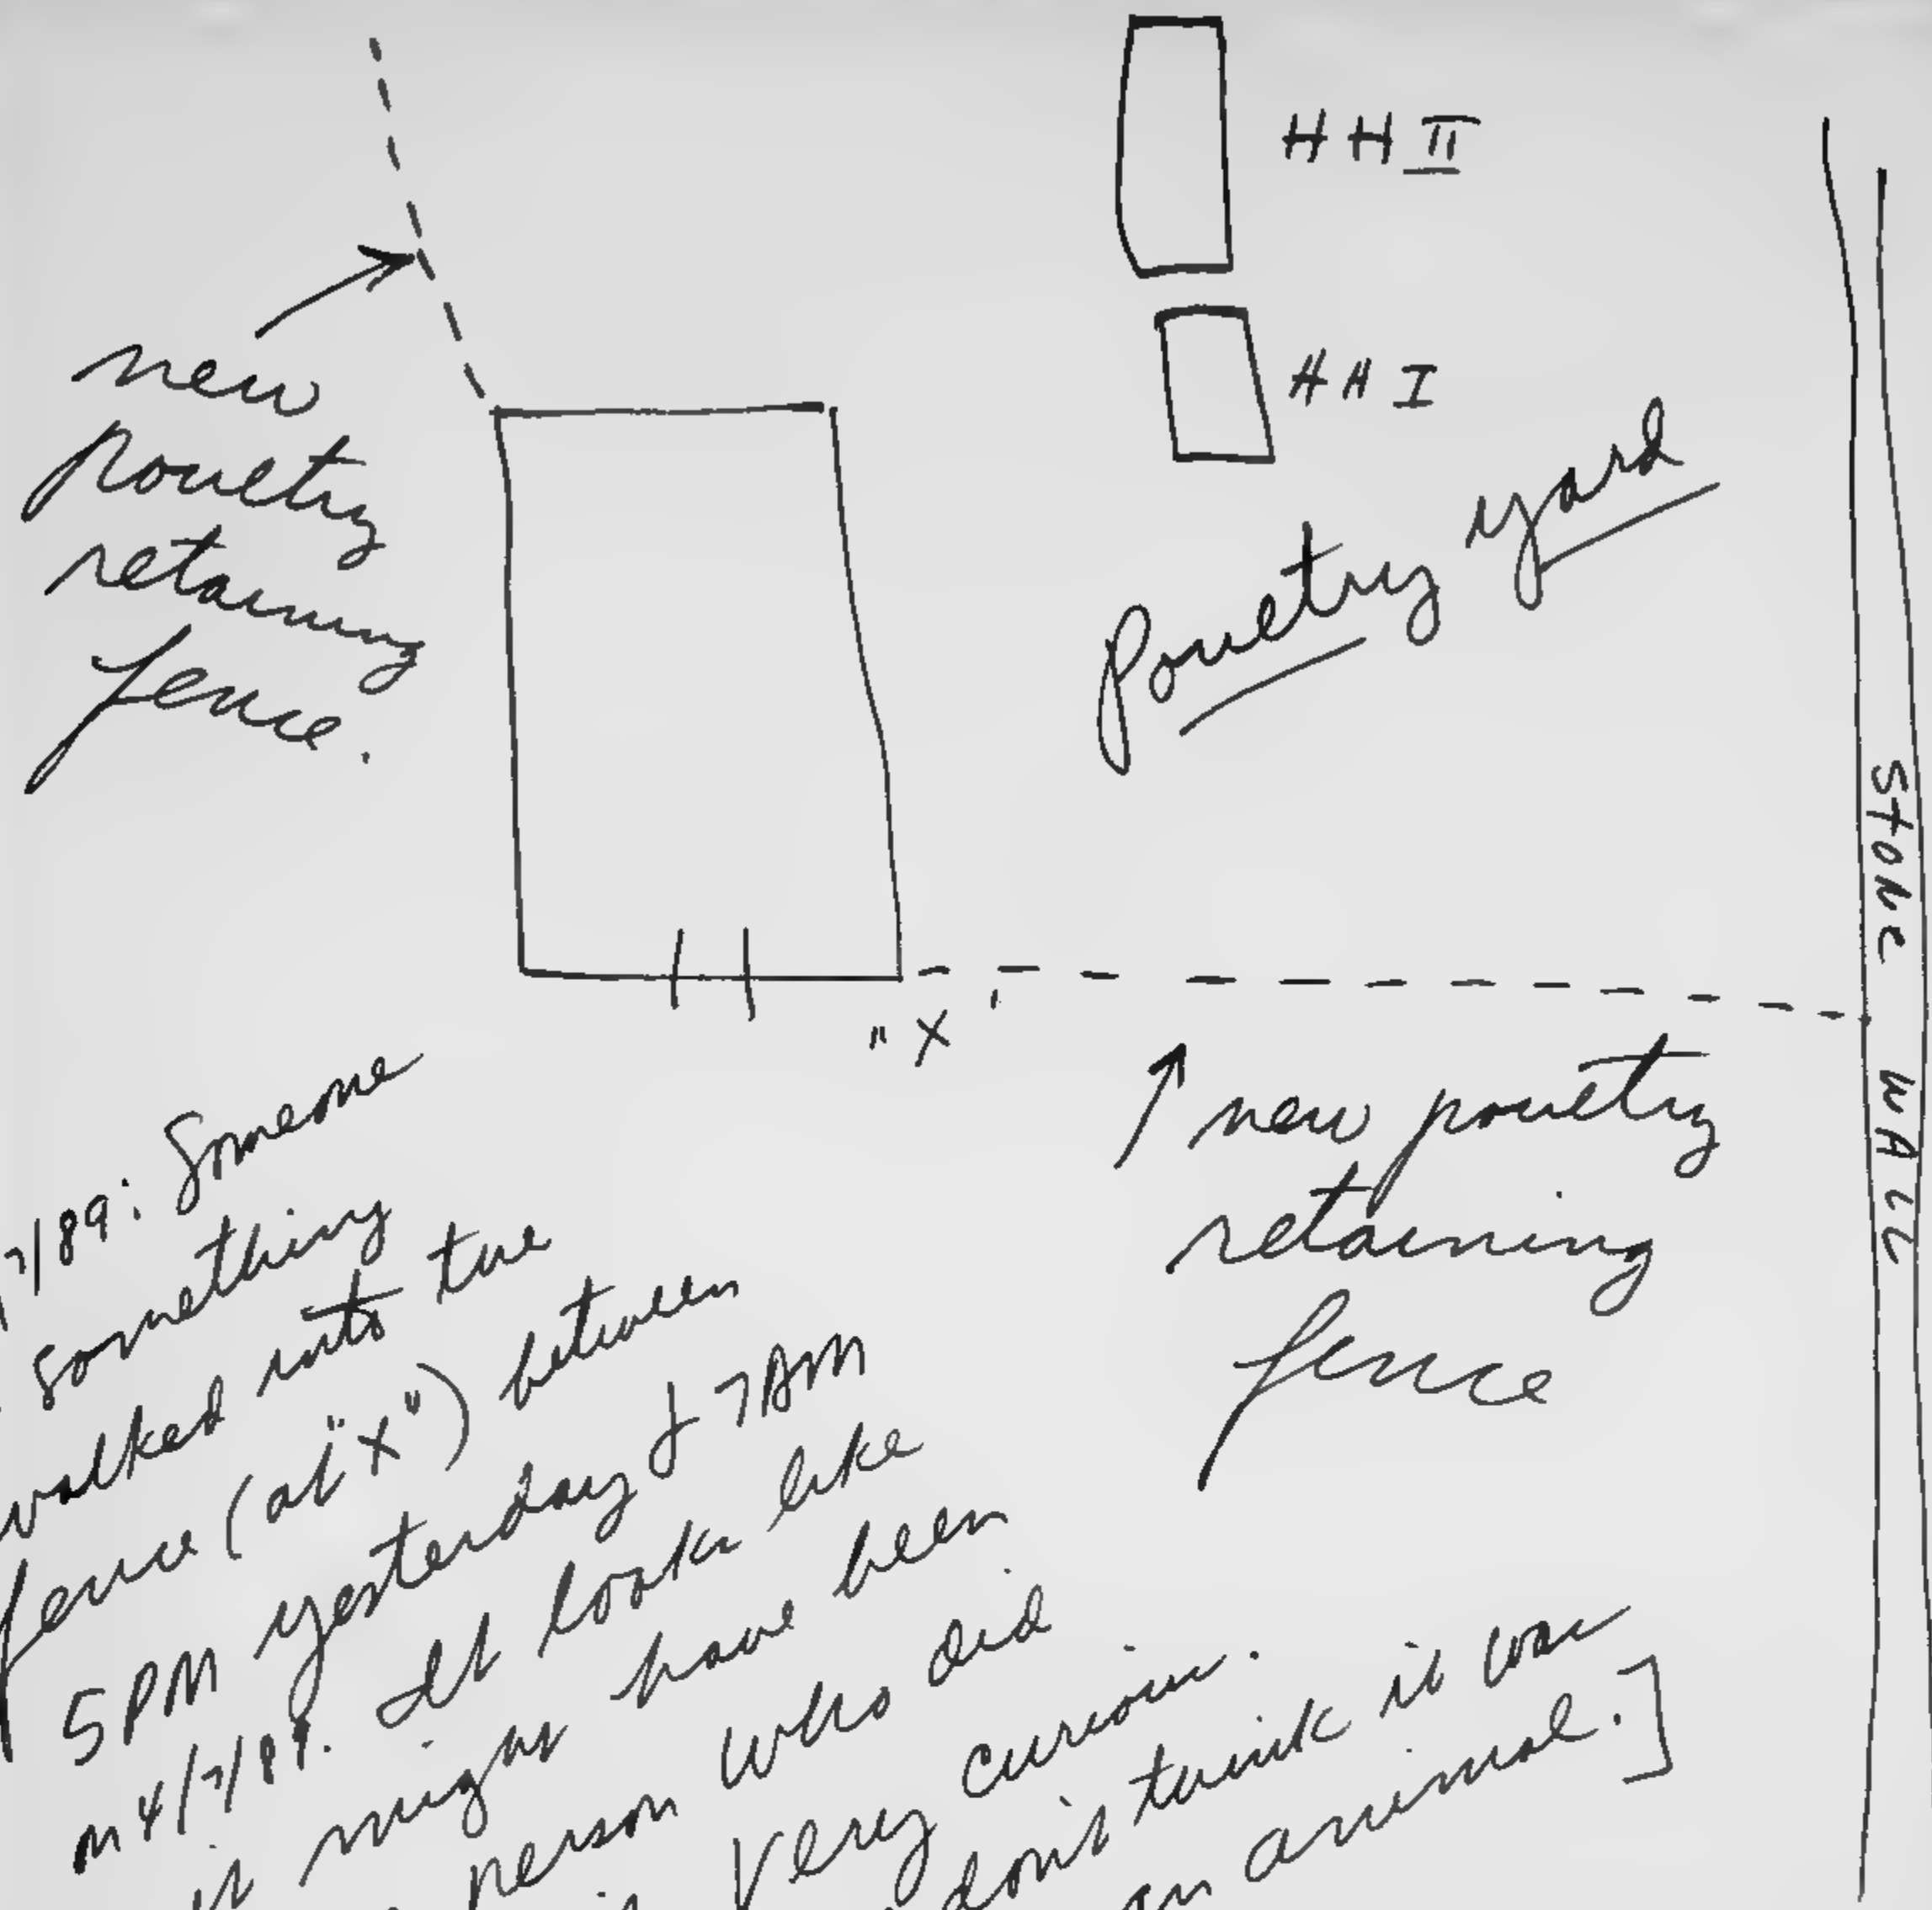 HH II
HH I
new
poultry
retaining
fence.
Poultry yard
Stone WALL
"X"
new poultry
retaining
fence
7/89: Someone
something
walked into the
fence (at "X") between
5 PM yesterday & 7 AM
on 4/7/89. It looks like
it might have been
person who did
Very curious.
don't think it was
an animal.]